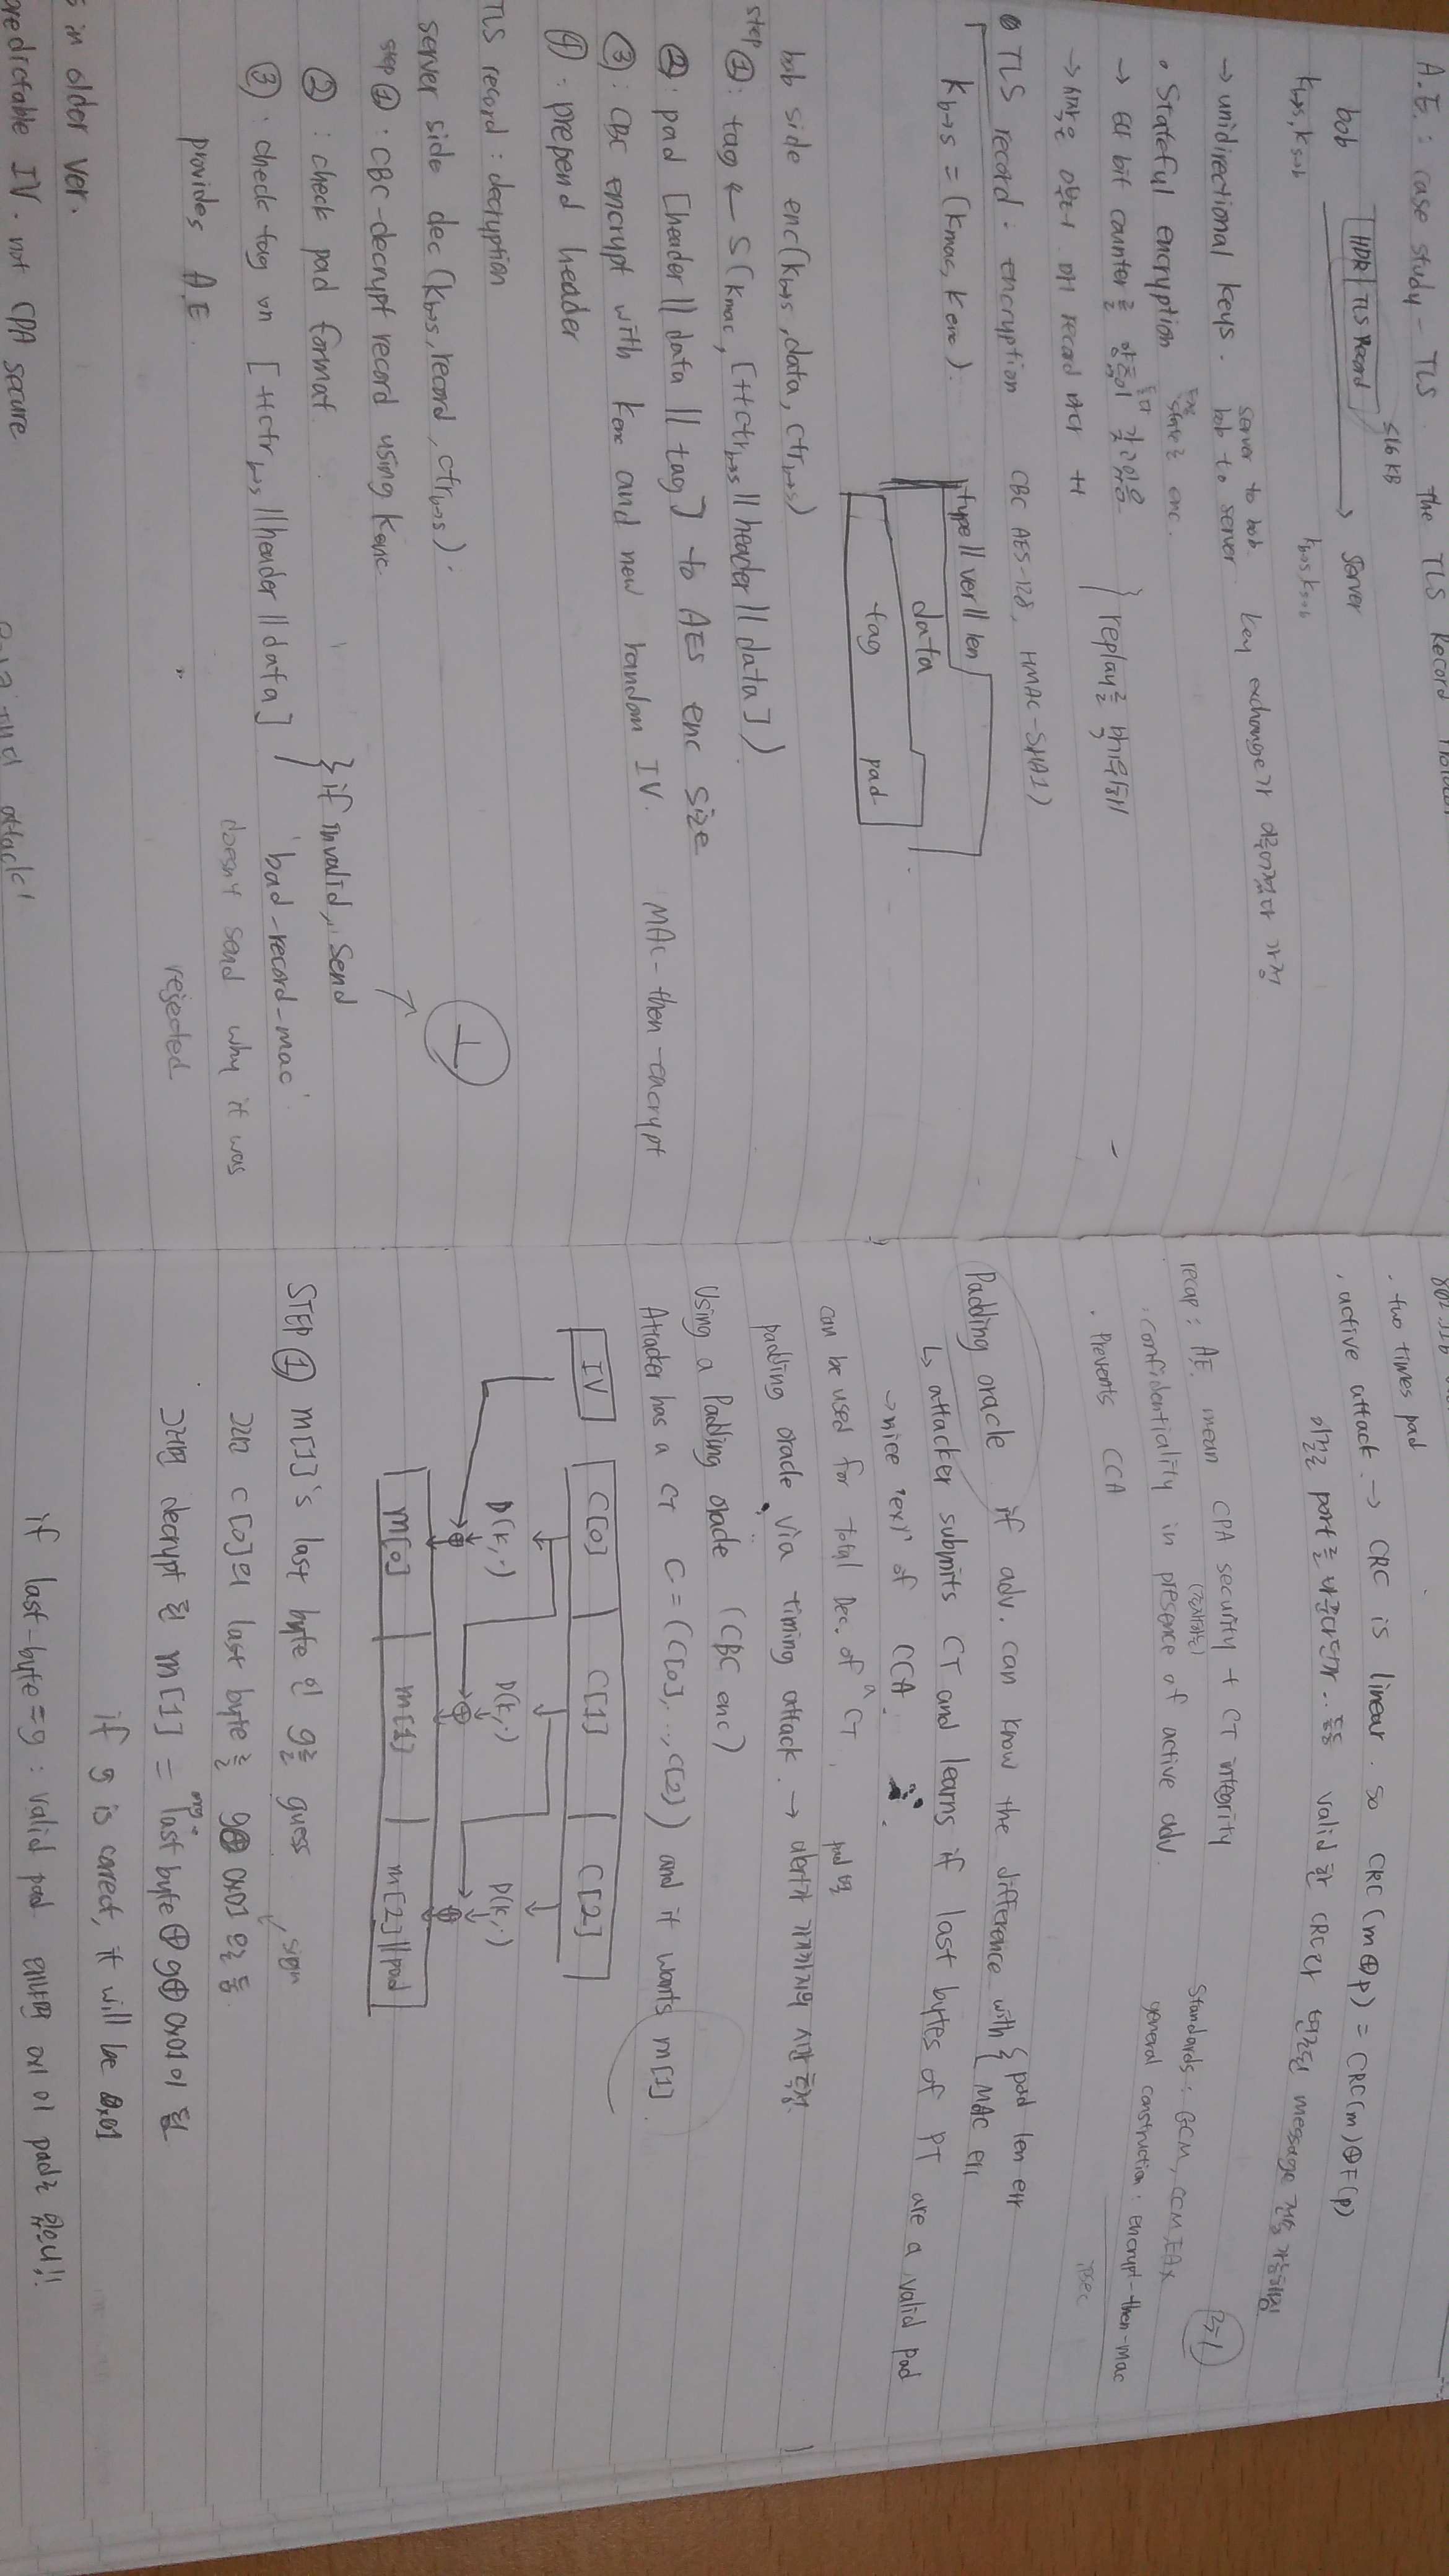 A.E. : case study - TLS. the TLS Record Protocol
≤16 KB
HDR | TLS Record
bob
server
k b→s, k s→b
k b→s, k s→b
→ unidirectional keys. server to bob. key exchange가 이루어졌다 가정
bob to server
• Stateful encryption state를 enc.
→ 64 bit counter를 양쪽이 갖고있음
→ 시작은 0부터 매 record 마다 ++
} replay를 막기위해
TLS record : encryption CBC AES-128, HMAC-SHA1)
k b→s = (kmac, kenc).
type || ver || len
data
tag pad
bob side enc(k b→s, data, ctr b→s)
step ①: tag ← S(kmac, [++ctr b→s || header || data])
②: pad [header || data || tag] to AES enc size
③: CBC encrypt with kenc and new random IV. MAC-then-encrypt
④: prepend header
TLS record : decryption
⊥
server side dec (k b→s, record, ctr b→s).
step ①: CBC-decrypt record using kenc.
②: check pad format.
③: check tag on [++ctr b→s || header || data]
} if invalid, send
'bad-record-mac'
doesn't send why it was
rejected
provides A.E.
in older ver.
predictable IV. not CPA secure
attack!
802.11b
. two times pad
. active attack. → CRC is linear. so CRC(m⊕p) = CRC(m)⊕F(p)
이걸로 port를 바꾼다던가.. 등등 valid 한 CRC라 변조된 message 전송 가능해짐
recap : A.E. mean CPA security + CT integrity
(존재하는)
. confidentiality in presence of active adv.
. Prevents CCA
Standards : GCM, CCM, EAX
general construction : encrypt-then-mac
ipsec
Padding oracle if adv. can know the difference with { pad len err
MAC err
↳ attacker submits CT and learns if last bytes of PT are a valid pad
→ nice 'ex)' of CCA.
can be used for total Dec. of a CT.
padding oracle via timing attack. → alert가 까지의 시간 측정.
Using a Padding oracle (CBC enc)
Attacker has a CT C = (C[0], ..., C[2]) and it wants m[1].
IV C[0] C[1] C[2]
D(k,·) D(k,·) D(k,·)
⊕ ⊕ ⊕
m[0] m[1] m[2]||pad
STEP ① m[1]'s last byte 인 g를 guess
sign
그리고 C[0]의 last byte를 g⊕ 0x01 으로 둠.
org.
그러면 decrypt 된 m[1] = last byte ⊕ g⊕ 0x01 이 됨
if g is correct, it will be 0x01
if last-byte = g : valid pad 왜냐면 0x1 이 pad로 있으니!!